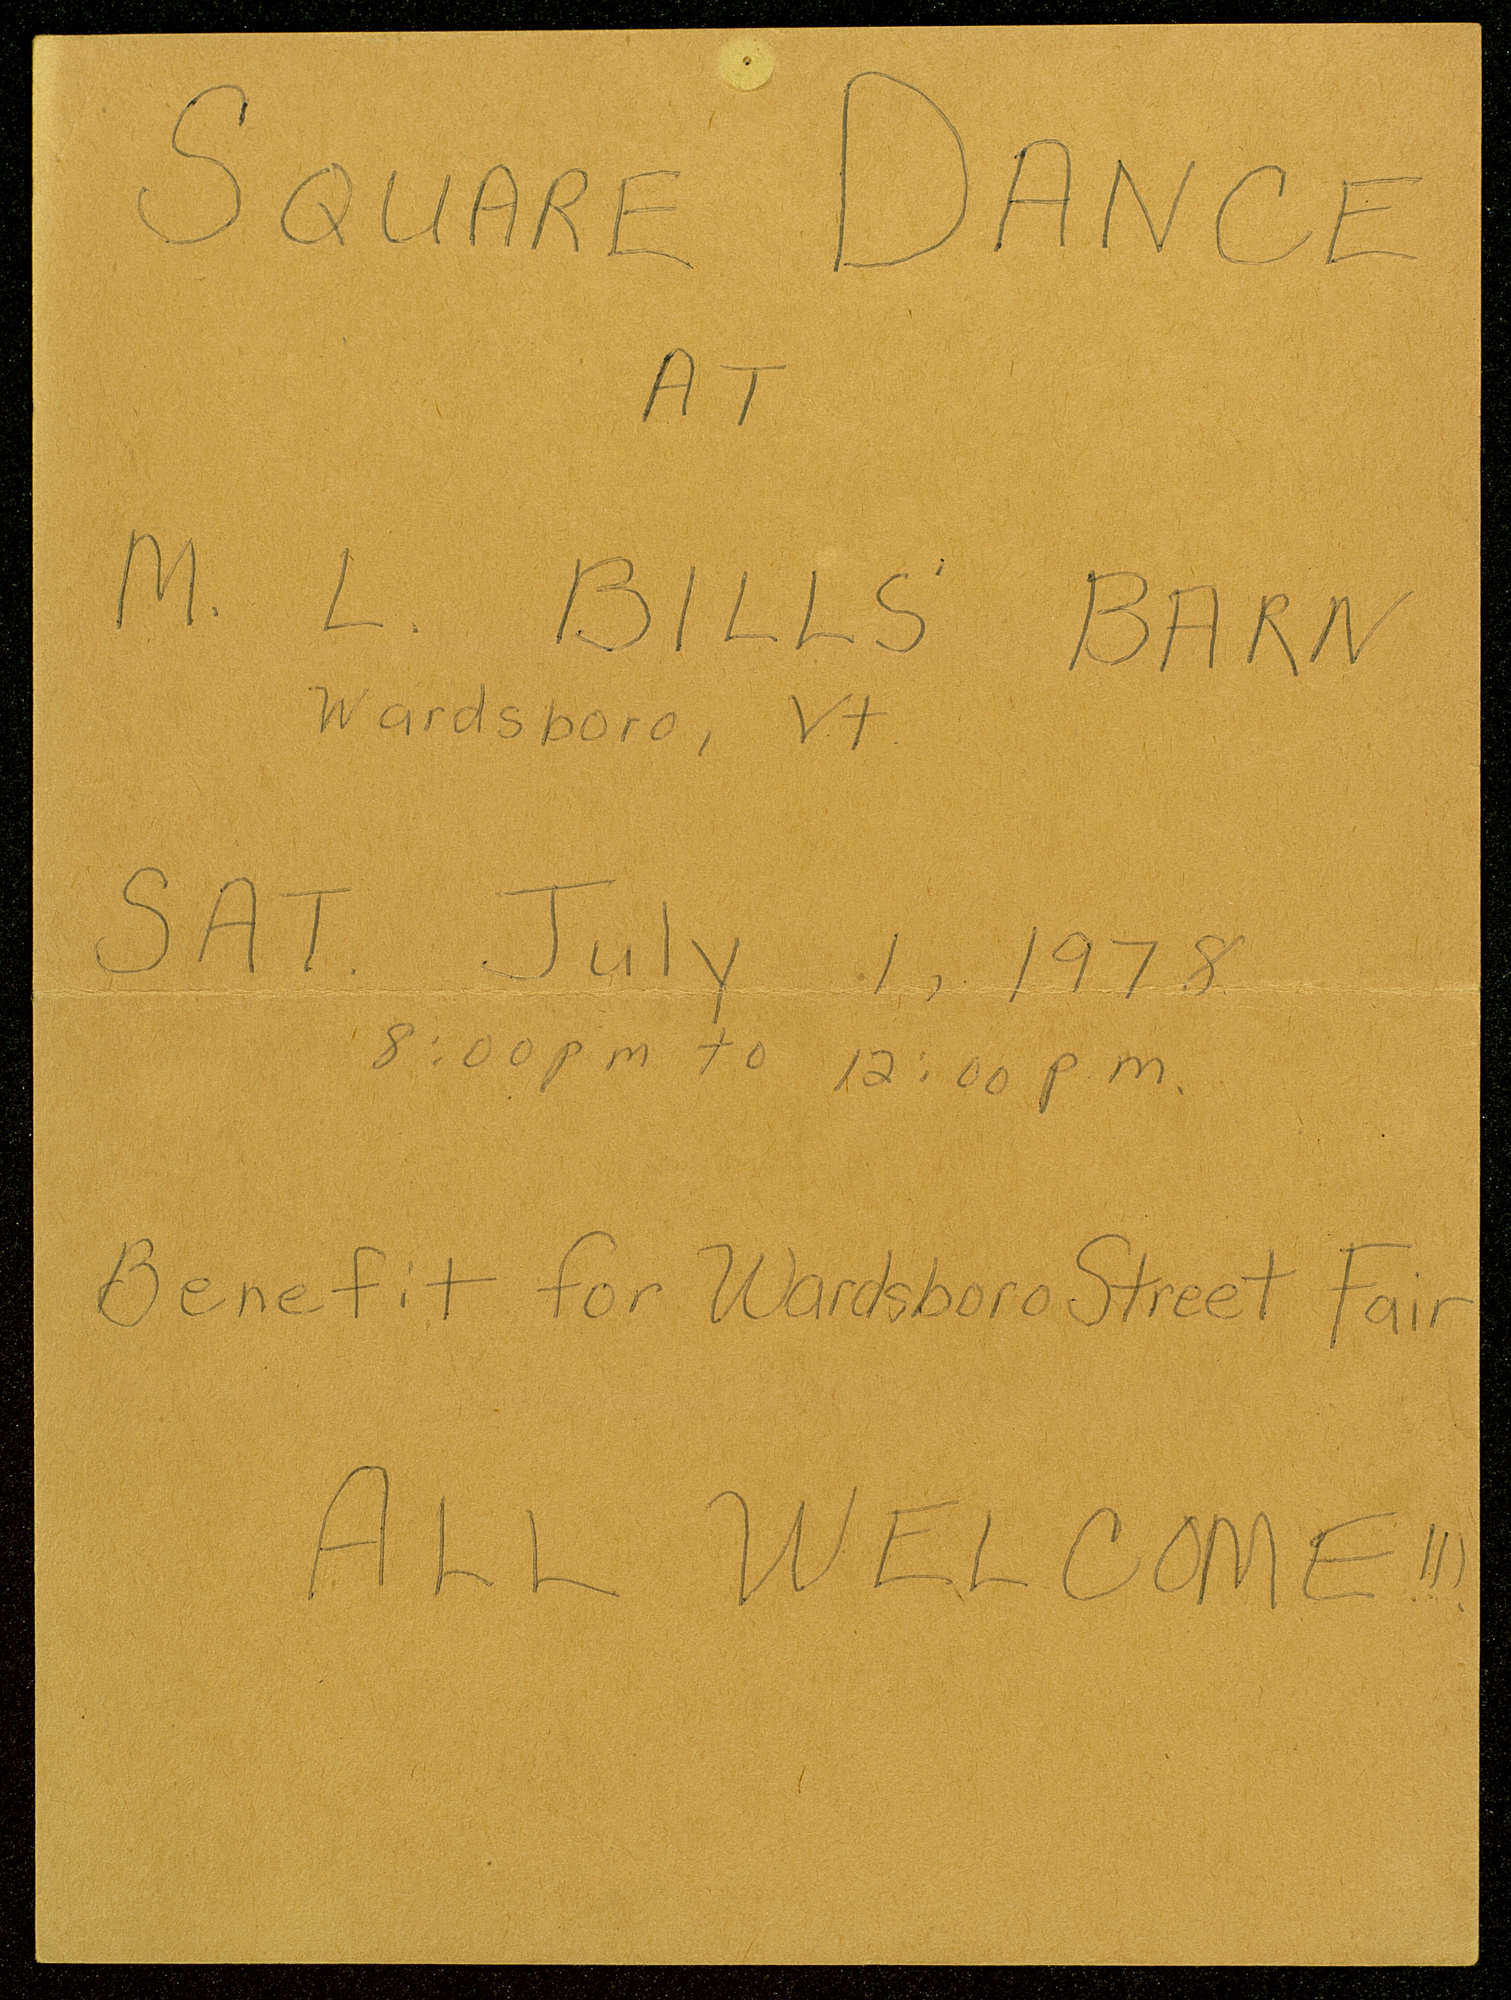 SQUARE DANCE
AT
M. L. BILLS' BARN
Wardsboro, Vt.
SAT. July 1, 1978
8:00 pm to 12:00 p.m.
Benefit for Wardsboro Street Fair
ALL WELCOME!!!